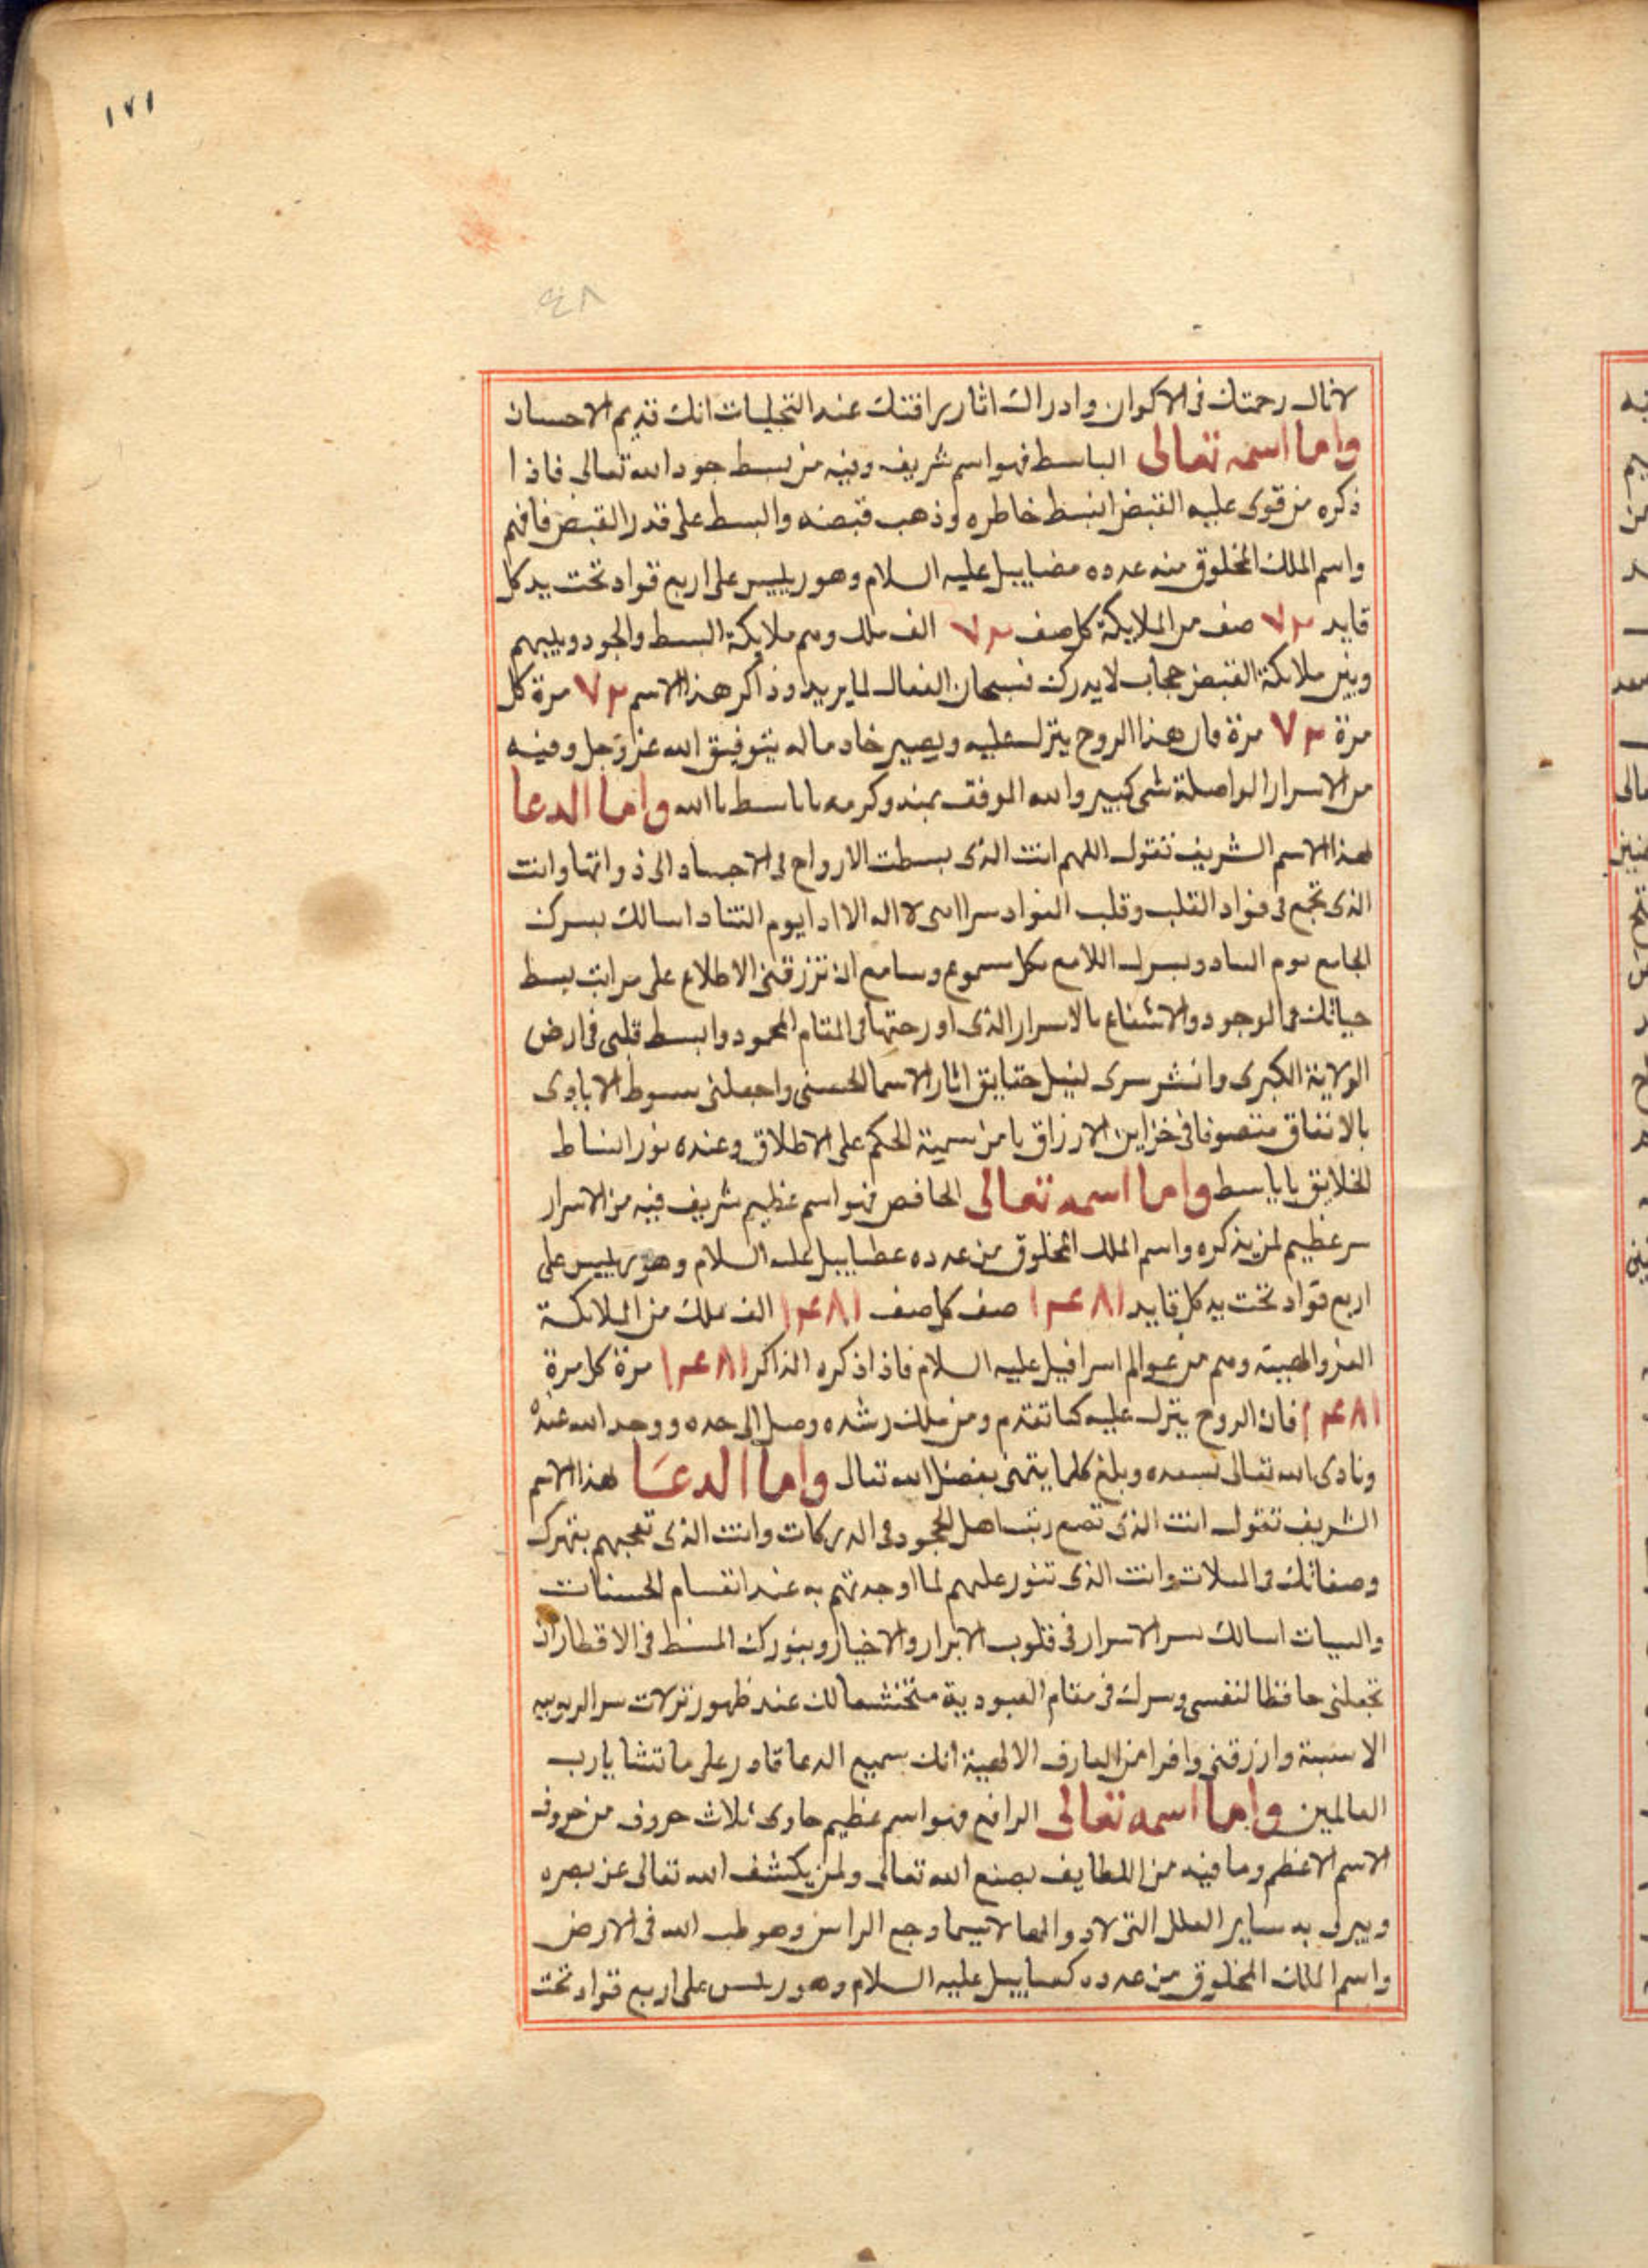 ١٧١
٤٨
لانال رحمتك فى الاكوان وادراك اثار رافتك عند التجليات انك قديم الاحسان
واما اسمه تعالى الباسط فهو اسم شريف وفيه من بسط جود الله تعالى فاذا
ذكره من قوى عليه القبض انبسط خاطره وذهب قبضه والبسط على قدر القبض فافهم
واسم الملك المخلوق منه عدده عليه السلام وهو رييس على اربع قواد تحت يد كل
قايد ٧٢ صف من الملايكة كل صف ٧٢ الف ملك وهم ملايكة البسط والجود وبينهم
وبين ملايكة القبض حجاب لا يدرك فسبحان الفعال لما يريد وذاكر هذا الاسم ٧٢ مرة كل
مرة ٧٢ مرة فان هذا الروح ينزل عليه ويصير خادما له بتوفيق الله عز وجل وفيه
من الاسرار الواصلة شى كبير والله الموفق بمنه وكرمه ياباسط ياالله واما الدعا
لهذا الاسم الشريف تقول اللهم انت الذى بسطت الارواح فى الاجساد الى ذواتها وانت
الذى تجمع فى فواد القلب وقلب الفواد سرا يوم التناد اسالك بسرك
الجامع يوم وبسرك اللامع بكل مسموع وسامع ان ترزقنى الاطلاع على مراتب بسط
حياتك فى الوجود والانتفاع بالاسرار الذى فى المقام المحمود وابسط قلبى فى ارض
الولاية الكبرى وانشر سرى لنيل حقايق اثار الاسما الحسنى واجعلنى مبسوط الايادى
بالانفاق متصرفا فى خزاين الارزاق يا من سمية الحكم على الاطلاق وعنده نور انبساط
الخلايق ياباسط واما اسمه تعالى الخافض فهو اسم عظيم شريف فيه من الاسرار
سر عظيم لمن يذكره واسم الملك المخلوق من عدده عطاييل عليه السلام وهو رييس على
اربع قواد تحت يد كل قايد ١٤٨١ صف كل صف ١٤٨١ الف ملك من الملايكة
العز والهيبة وهم من عوالم اسرافيل عليه السلام فاذا ذكره الذاكر ١٤٨١ مرة كل مرة
١٤٨١ فان الروح ينزل عليه كما تقدم ومن ملك رشده وصل الى حده ووجد الله عنده
ونادى الله تعالى بسعده وبلغ كلما يتمنى بفضل الله تعالى واما الدعا لهذا الاسم
الشريف تقول انت الذى تضع رتب اهل الجحود فى الدركات وانت الذى تحجبهم بقهرك
وصفاتك فى وانت الذى تنور عليهم لما اوجدتهم به عند انقسام الحسنات
والسيات اسالك بسر الاسرار فى قلوب الابرار والاخيار وبنورك المنبسط فى الاقطار ان
تجعلنى حافظا لنفسى وسرك فى مقام العبودية متخشعا لك عند ظهور تنزلات سر الربوبيه
وارزقنى وافرا من المعارف الالهية انك سميع الدعا قادر على ما تشا يا رب
العالمين واما اسمه تعالى الرافع فهو اسم عظيم حاوى ثلاث حروف من حروف
الاسم الاعظم وما فيه من اللطايف بصنع الله تعالى ولمن يكشف الله تعالى عن بصره
ويبرى به ساير العلل التى لا دوا لها لا سيما وجع الراس وهو طب الله فى الارض
واسم الملك المخلوق من عدده عليه السلام وهو رييس على اربع قواد تحت